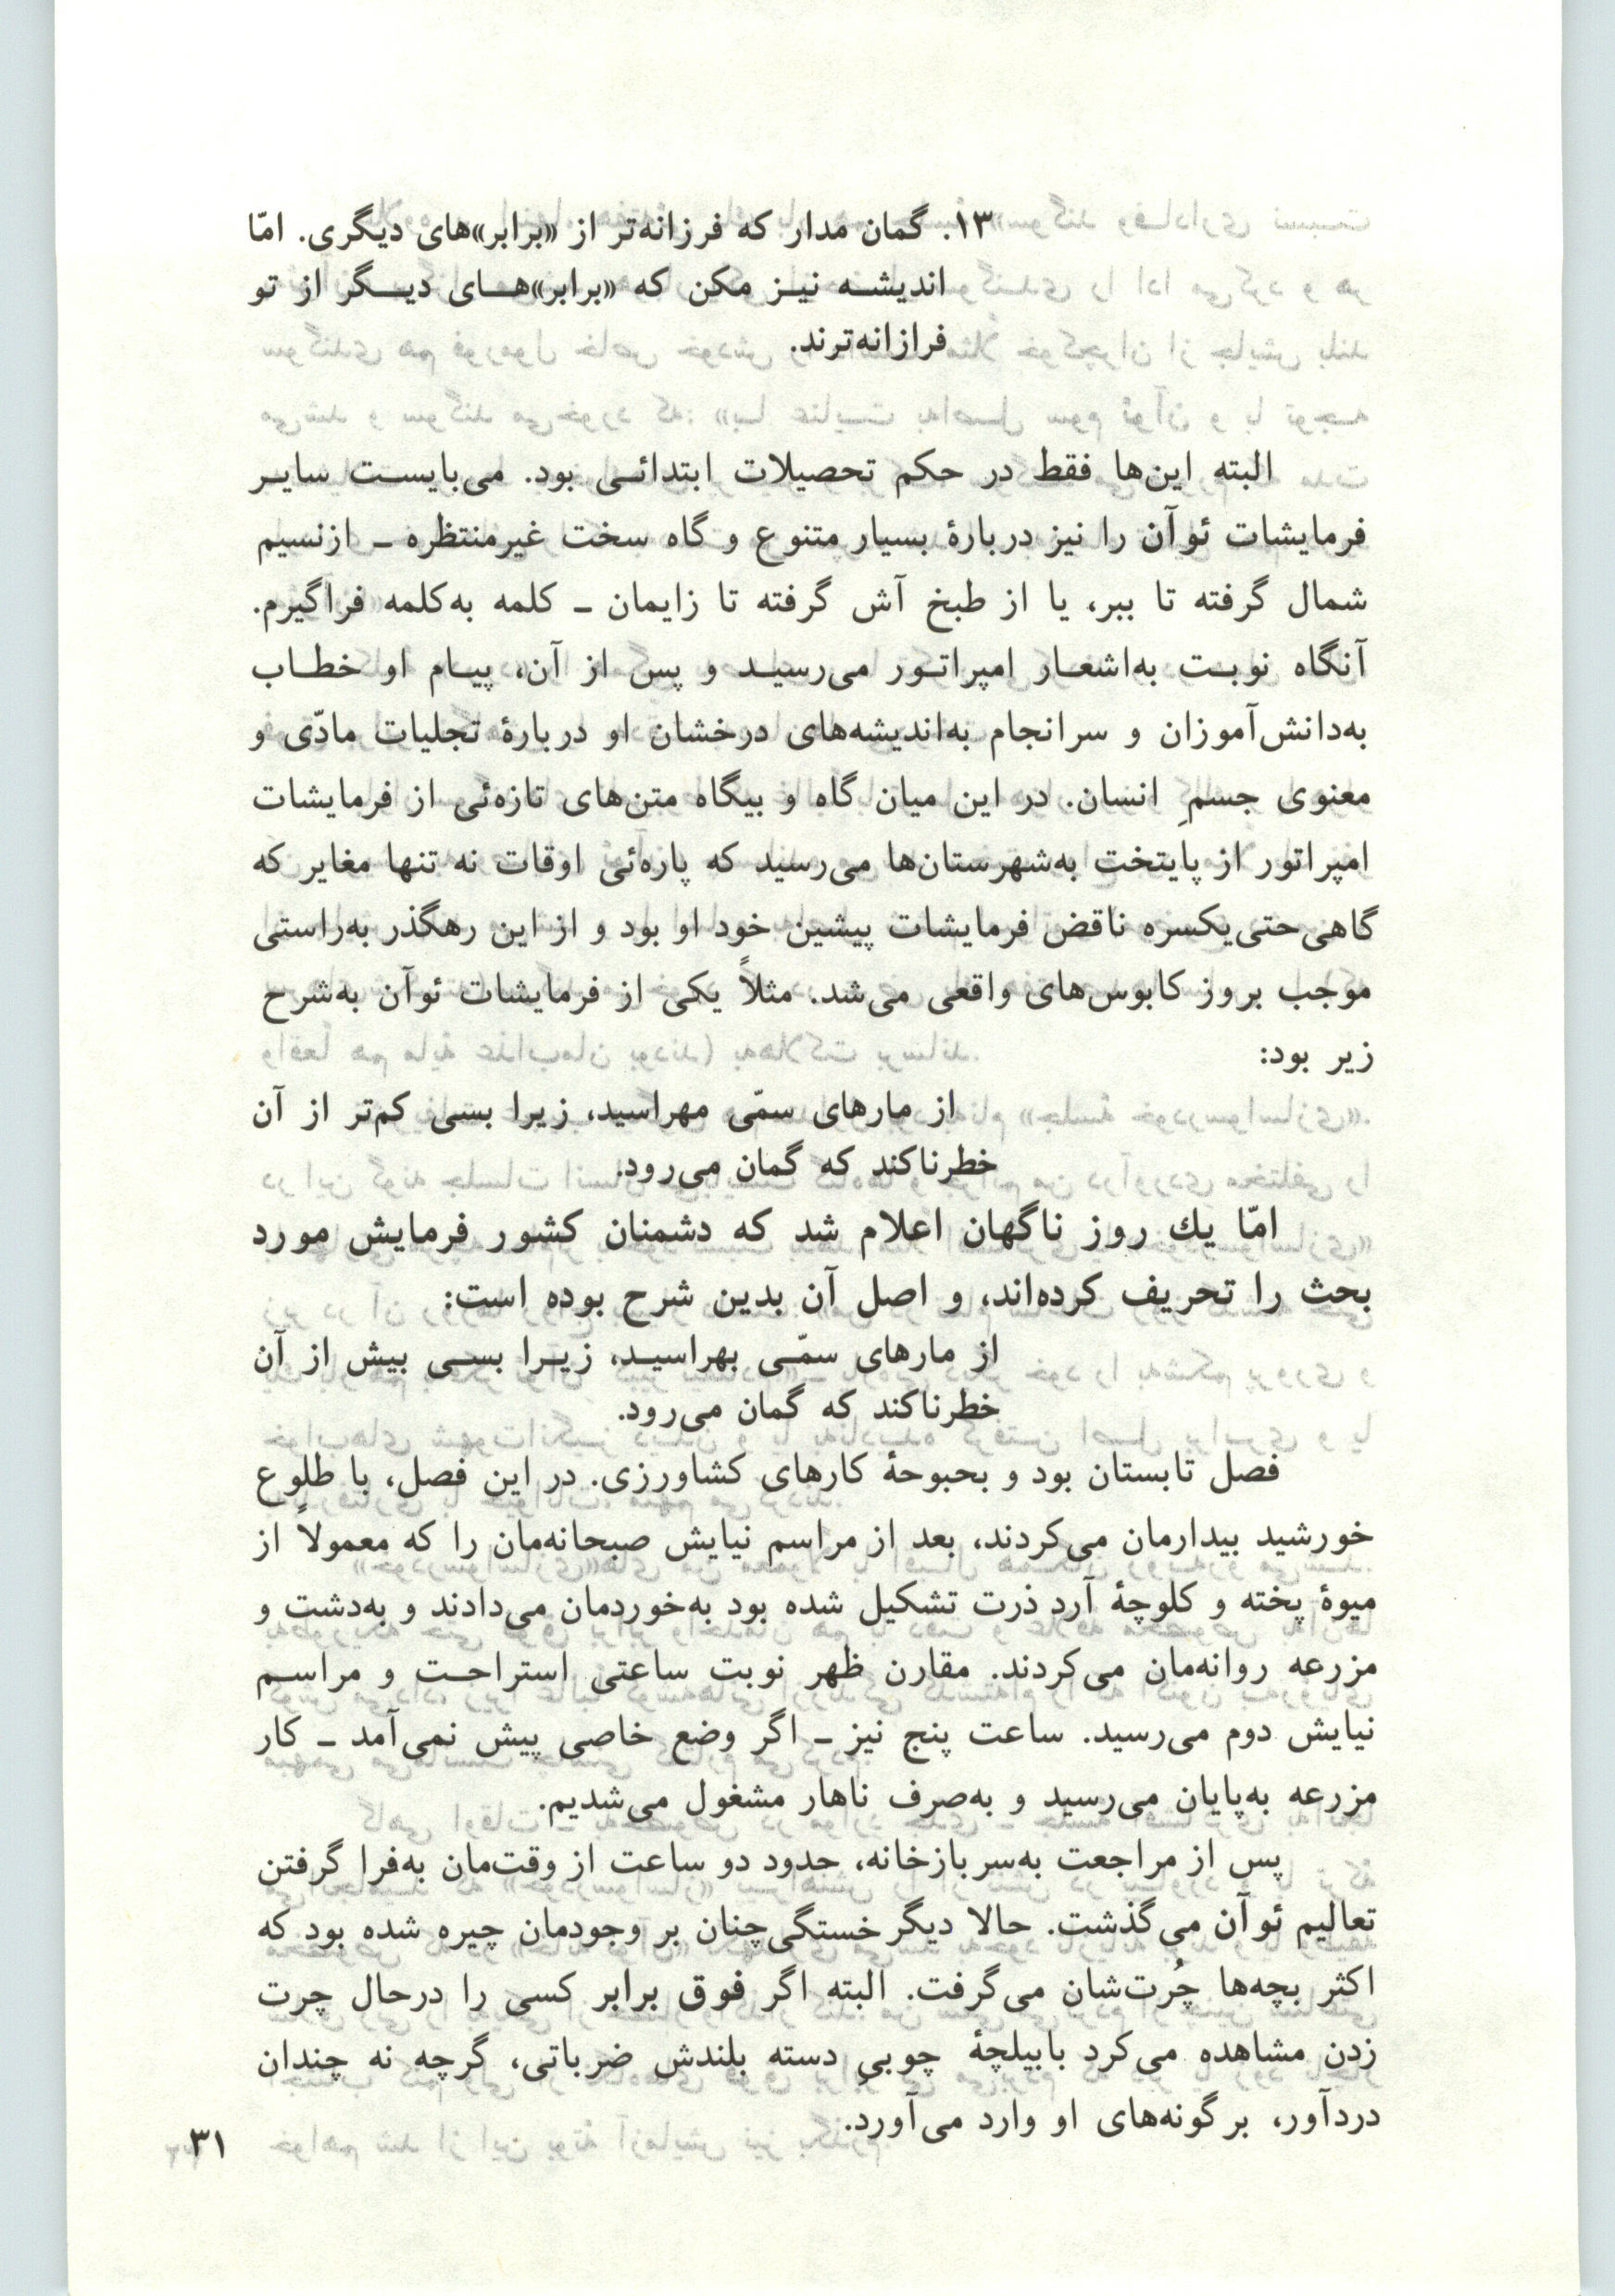 ۱۳. گمان مدار که فرزانه‌تر از «برابر»های دیگری. امّا
اندیشه نیز مکن که «برابر»های دیگر از تو
فرازانه‌ترند.
البته این‌ها فقط در حکم تحصیلات ابتدائی بود. می‌بایست سایر
فرمایشات ئوآن را نیز دربارهٔ بسیار متنوع و گاه سخت غیرمنتظره ـ ازنسیم
شمال گرفته تا ببر، یا از طبخ آش گرفته تا زایمان ـ کلمه به‌کلمه فراگیرم.
آنگاه نوبت به‌اشعار امپراتور می‌رسید و پس از آن، پیام او خطاب
به‌دانش‌آموزان و سرانجام به‌اندیشه‌های درخشان او دربارهٔ تجلیات مادّی و
معنوی جسمِ انسان. در این میان گاه و بیگاه متن‌های تازه‌ئی از فرمایشات
امپراتور از پایتخت به‌شهرستان‌ها می‌رسید که پاره‌ئی اوقات نه تنها مغایر که
گاهی‌حتی‌یکسره ناقض فرمایشات پیشین خود او بود و از این رهگذر به‌راستی
موجب بروز کابوس‌های واقعی می‌شد. مثلاً یکی از فرمایشات ئوآن به‌شرح
زیر بود:
از مارهای سمّی مهراسید، زیرا بسی کم‌تر از آن
خطرناکند که گمان می‌رود.
امّا یك روز ناگهان اعلام شد که دشمنان کشور فرمایش مورد
بحث را تحریف کرده‌اند، و اصل آن بدین شرح بوده است:
از مارهای سمّی بهراسید، زیرا بسی بیش از آن
خطرناکند که گمان می‌رود.
فصل تابستان بود و بحبوحهٔ کارهای کشاورزی. در این فصل، با طلوع
خورشید بیدارمان می‌کردند، بعد از مراسم نیایش صبحانه‌مان را که معمولاً از
میوهٔ پخته و کلوچهٔ آرد ذرت تشکیل شده بود به‌خوردمان می‌دادند و به‌دشت و
مزرعه روانه‌مان می‌کردند. مقارن ظهر نوبت ساعتی استراحت و مراسم
نیایش دوم می‌رسید. ساعت پنج نیز ـ اگر وضع خاصی پیش نمی‌آمد ـ کار
مزرعه به‌پایان می‌رسید و به‌صرف ناهار مشغول می‌شدیم.
پس از مراجعت به‌سربازخانه، حدود دو ساعت از وقت‌مان به‌فرا گرفتن
تعالیم ئوآن می‌گذشت. حالا دیگر خستگی‌چنان بر وجودمان چیره شده بود که
اکثر بچه‌ها چُرت‌شان می‌گرفت. البته اگر فوق برابر کسی را درحال چرت
زدن مشاهده می‌کرد بابیلچهٔ چوبیِ دسته بلندش ضرباتی، گرچه نه چندان
دردآور، برگونه‌های او وارد می‌آورد.
۳۱